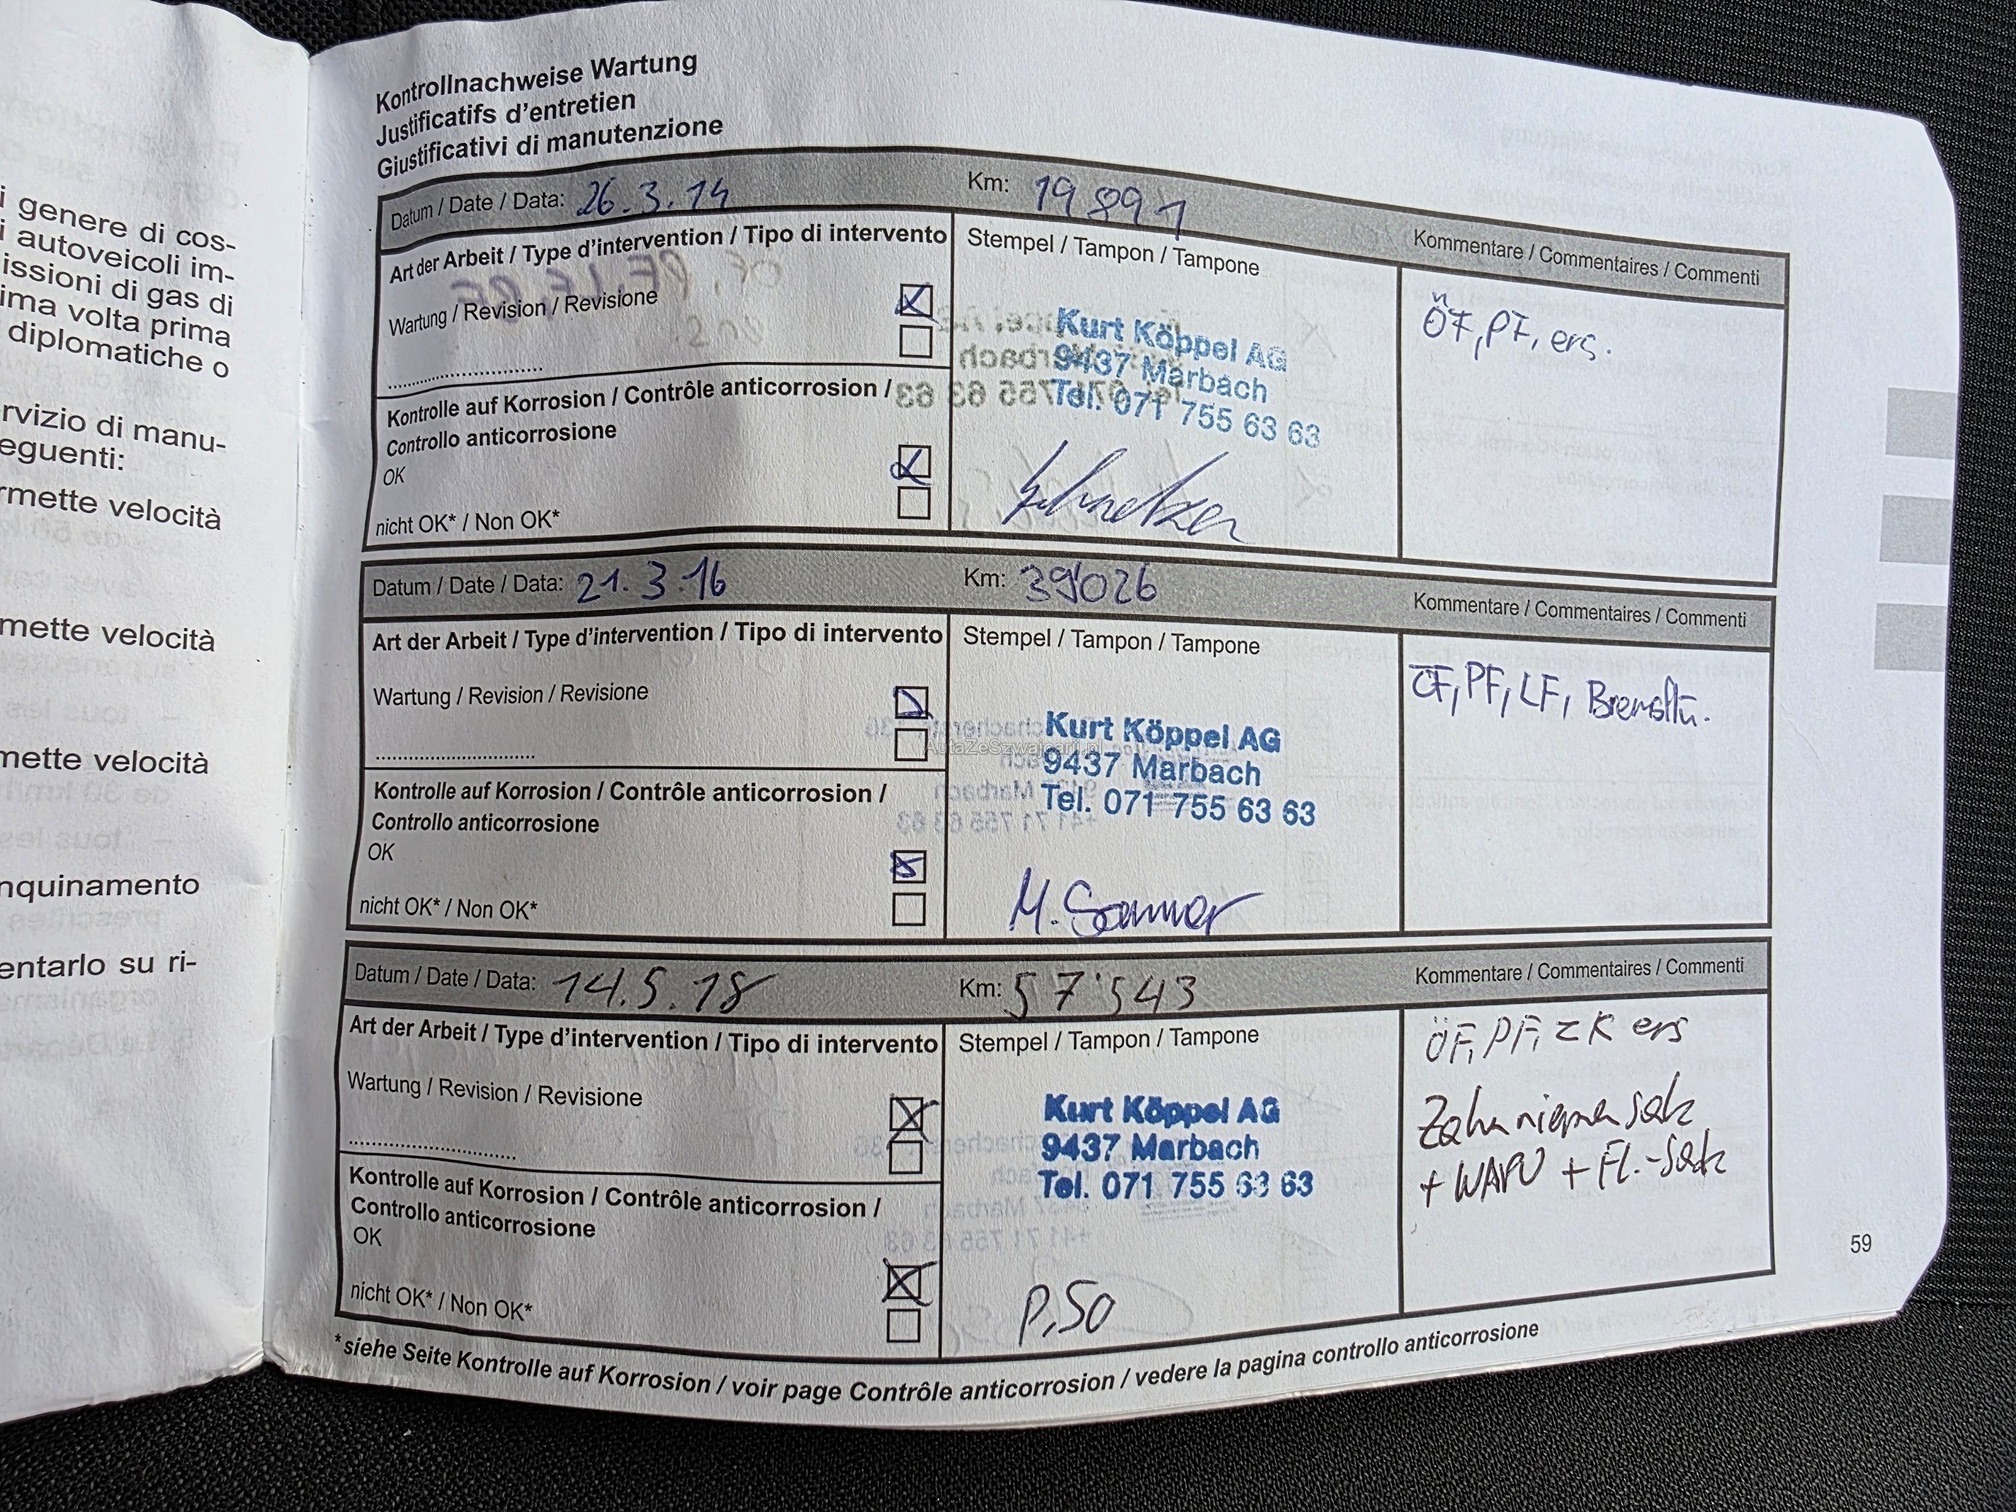 i genere di cos-
i autoveicoli im-
issioni di gas di
ima volta prima
diplomatiche o
rvizio di manu-
eguenti:
rmette velocità
mette velocità
mette velocità
nquinamento
entarlo su ri-
Kontrollnachweise Wartung
Justificatifs d'entretien
Giustificativi di manutenzione
Datum / Date / Data: 26.3.14 Km: 19891
Kommentare / Commentaires / Commenti
Art der Arbeit / Type d'intervention / Tipo di intervento
Stempel / Tampon / Tampone
Wartung / Revision / Revisione
Kurt Köppel AG
9437 Marbach
Tel. 071 755 63 63
ÖF, PF, ers.
Kontrolle auf Korrosion / Contrôle anticorrosion /
Controllo anticorrosione
OK
nicht OK* / Non OK*
Datum / Date / Data: 21.3.16 Km: 39026
Kommentare / Commentaires / Commenti
Art der Arbeit / Type d'intervention / Tipo di intervento
Stempel / Tampon / Tampone
Wartung / Revision / Revisione
Kurt Köppel AG
AutaZeSzwajcarii.pl
9437 Marbach
Tel. 071 755 63 63
ÖF, PF, LF, Bremsflü.
Kontrolle auf Korrosion / Contrôle anticorrosion /
Controllo anticorrosione
OK
nicht OK* / Non OK*
Datum / Date / Data: 14.5.18 Km: 57'543
Kommentare / Commentaires / Commenti
Art der Arbeit / Type d'intervention / Tipo di intervento
Stempel / Tampon / Tampone
Wartung / Revision / Revisione
Kurt Köppel AG
9437 Marbach
Tel. 071 755 63 63
ÖF, PF, ZK ers
Zahnriemensatz
+ WAPU + Fl.-Satz
Kontrolle auf Korrosion / Contrôle anticorrosion /
Controllo anticorrosione
OK
nicht OK* / Non OK*
P.SO
*siehe Seite Kontrolle auf Korrosion / voir page Contrôle anticorrosion / vedere la pagina controllo anticorrosione
59